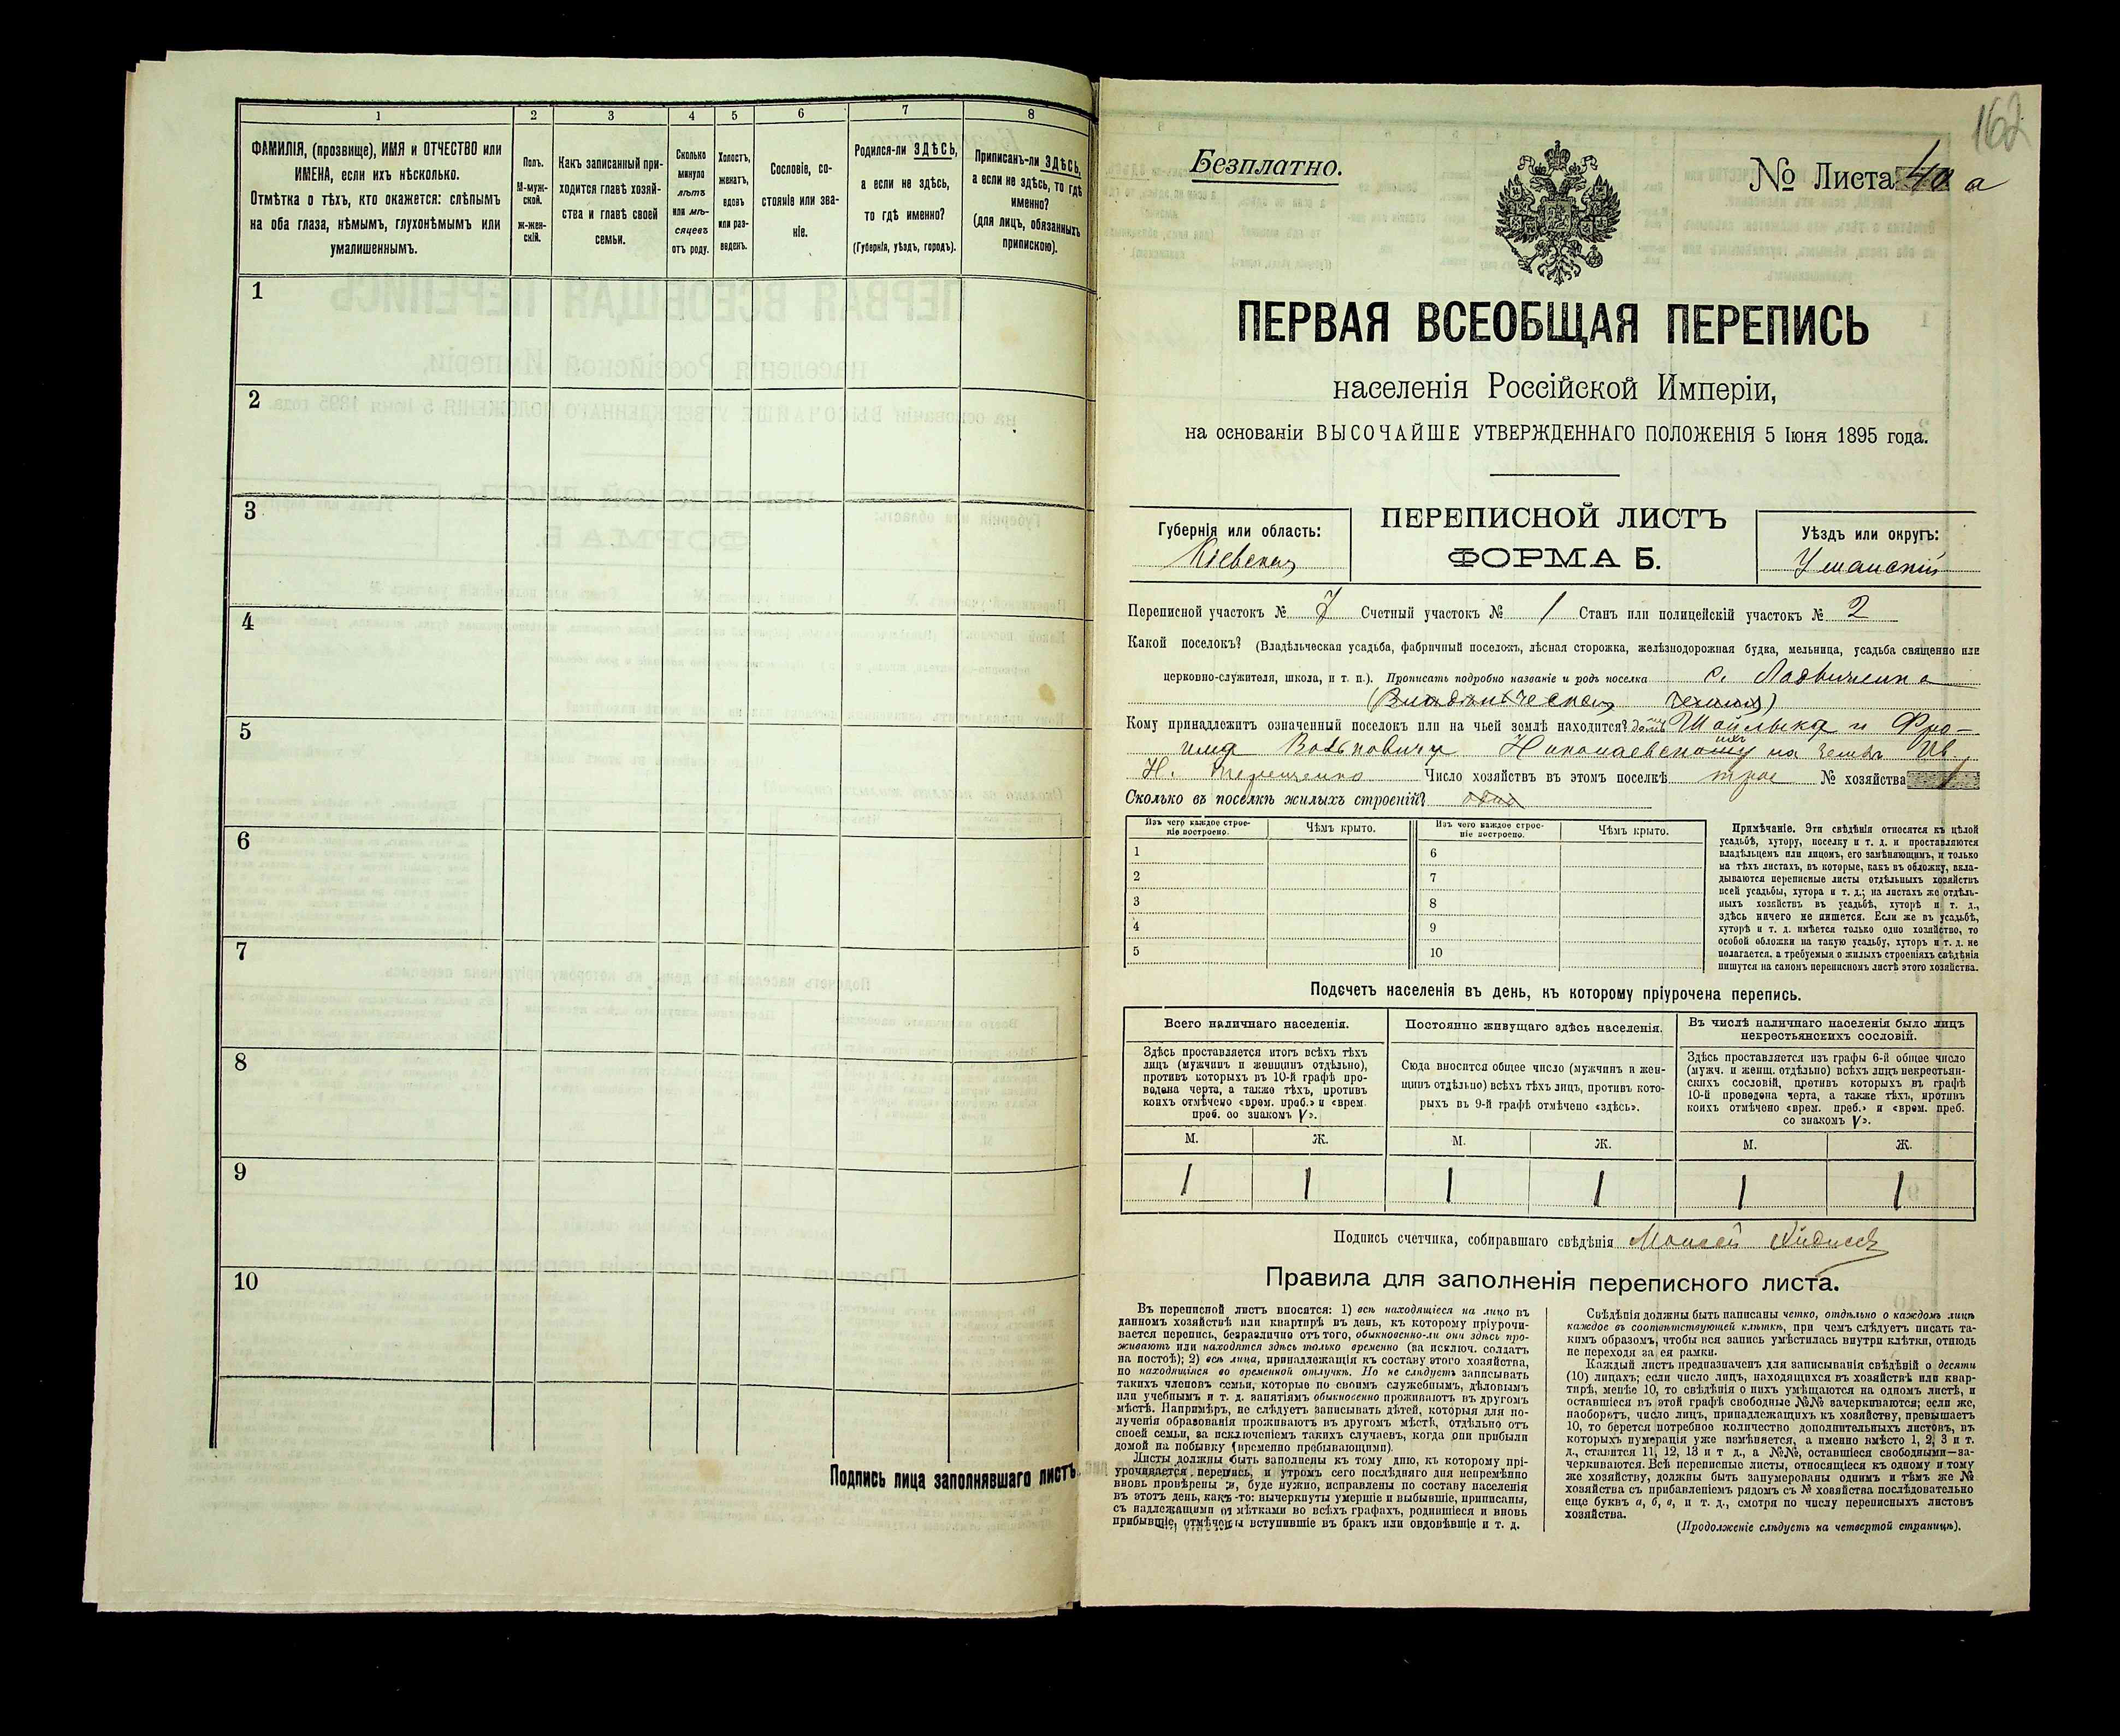 1
2
3
4
5
6
7
8
ФАМИЛІЯ, (прозвище), ИМЯ и ОТЧЕСТВО или
ИМЕНА, если ихъ нѣсколько.
Отмѣтка о тѣхъ, кто окажется: слѣпымъ
на оба глаза, нѣмымъ, глухонѣмымъ или
умалишеннымъ.
Полъ.
М-муж-
ской.
ж-жен-
скій.
Какъ записанный при-
ходится главѣ хозяй-
ства и главѣ своей
семьи.
Сколько
минуло
лѣтъ
или мѣ-
сяцевъ
отъ роду.
Холостъ,
женатъ,
вдовъ
или раз-
веденъ.
Сословіе, со-
стояніе или зва-
ніе.
Родился-ли ЗДѢСЬ,
а если не здѣсь,
то гдѣ именно?
(Губернія, уѣздъ, городъ).
Приписанъ-ли ЗДѢСЬ,
а если не здѣсь, то гдѣ
именно?
(для лицъ, обязанныхъ
припискою).
1
2
3
4
5
6
7
8
9
10
Подпись лица заполнявшаго листъ
162
Безплатно.
№ Листа 40 а
ПЕРВАЯ ВСЕОБЩАЯ ПЕРЕПИСЬ
населенія Россійской Имперіи,
на основаніи ВЫСОЧАЙШЕ УТВЕРЖДЕННАГО ПОЛОЖЕНІЯ 5 Іюня 1895 года.
Губернія или область:
Кіевская
ПЕРЕПИСНОЙ ЛИСТЪ
ФОРМА Б.
Уѣздъ или округъ:
Уманскій
Переписной участокъ № 7 Счетный участокъ № 1 Станъ или полицейскій участокъ № 2
Какой поселокъ? (Владѣльческая усадьба, фабричный поселокъ, лѣсная сторожка, желѣзнодорожная будка, мельница, усадьба священно или
церковно-служителя, школа, и т. п.). Прописать подробно названіе и родъ поселка с.
Кому принадлежитъ означенный поселокъ или на чьей землѣ находится? Шайлыка и Фро-
има Волькович Николаевскому на земль Ив
Н. Терещенко Число хозяйствъ въ этомъ поселкѣ трое № хозяйства 1
Сколько въ поселкѣ жилыхъ строеній? одно
Изъ чего каждое строе-
ніе построено.
Чѣмъ крыто.
Изъ чего каждое строе-
ніе построено.
Чѣмъ крыто.
1
2
3
4
5
6
7
8
9
10
Примѣчаніе. Эти свѣдѣнія относятся къ цѣлой
усадьбѣ, хутору, поселку и т. д. и проставляются
владѣльцемъ или лицомъ, его замѣняющимъ, и только
на тѣхъ листахъ, въ которые, какъ въ обложку, вкла-
дываются переписные листы отдѣльныхъ хозяйствъ
всей усадьбы, хутора и т. д.; на листахъ же отдѣль-
ныхъ хозяйствъ въ усадьбѣ, хуторѣ и т. д.,
здѣсь ничего не пишется. Если же въ усадьбѣ,
хуторѣ и т. д. имѣется только одно хозяйство, то
особой обложки на такую усадьбу, хуторъ и т. д. не
полагается, а требуемыя о жилыхъ строеніяхъ свѣдѣнія
пишутся на самомъ переписномъ листѣ этого хозяйства.
Подсчетъ населенія въ день, къ которому пріурочена перепись.
Всего наличнаго населенія.
Здѣсь проставляется итогъ всѣхъ тѣхъ
лицъ (мужчинъ и женщинъ отдѣльно),
противъ которыхъ въ 10-й графѣ про-
ведена черта, а также тѣхъ, противъ
коихъ отмѣчено «врем. преб.» и «врем.
преб. со знакомъ V».
Постоянно живущаго здѣсь населенія.
Сюда вносится общее число (мужчинъ и жен-
щинъ отдѣльно) всѣхъ тѣхъ лицъ, противъ кото-
рыхъ въ 9-й графѣ отмѣчено «здѣсь».
Въ числѣ наличнаго населенія было лицъ
некрестьянскихъ сословій.
Здѣсь проставляется изъ графы 6-й общее число
(мужч. и женщ. отдѣльно) всѣхъ лицъ некрестьян-
скихъ сословій, противъ которыхъ въ графѣ
10-й проведена черта, а также тѣхъ, противъ
коихъ отмѣчено «врем. преб.» и «врем. преб.
со знакомъ V».
М. Ж. М. Ж. М. Ж.
1 1 1 1 1 1
Подпись счетчика, собиравшаго свѣдѣнія Моисей
Правила для заполненія переписного листа.
Въ переписной листъ вносятся: 1) всѣ находящіеся на лицо въ
данномъ хозяйствѣ или квартирѣ въ день, къ которому пріурочи-
вается перепись, безразлично отъ того, обыкновенно-ли они здѣсь про-
живаютъ или находятся здѣсь только временно (за исключ. солдатъ
на постоѣ); 2) всѣ лица, принадлежащія къ составу этого хозяйства,
но находящіяся во временной отлучкѣ. Но не слѣдуетъ записывать
такихъ членовъ семьи, которые по своимъ служебнымъ, дѣловымъ
или учебнымъ и т. д. занятіямъ обыкновенно проживаютъ въ другомъ
мѣстѣ. Напримѣръ, не слѣдуетъ записывать дѣтей, которыя для по-
лученія образованія проживаютъ въ другомъ мѣстѣ, отдѣльно отъ
своей семьи, за исключеніемъ такихъ случаевъ, когда они прибыли
домой на побывку (временно пребывающими).
Листы должны быть заполнены къ тому дню, къ которому прі-
урочивается перепись, и утромъ сего послѣдняго дня непремѣнно
вновь провѣрены и, буде нужно, исправлены по составу населенія
въ этотъ день, какъ-то: вычеркнуты умершіе и выбывшіе, приписаны,
съ надлежащими отмѣтками во всѣхъ графахъ, родившіеся и вновь
прибывшіе, отмѣчены вступившіе въ бракъ или овдовѣвшіе и т. д.
Свѣдѣнія должны быть написаны четко, отдѣльно о каждомъ лицѣ
каждое въ соотвѣтствующей клѣткѣ, при чемъ слѣдуетъ писать та-
кимъ образомъ, чтобы вся запись умѣстилась внутри клѣтки, отнюдь
не переходя за ея рамки.
Каждый листъ предназначенъ для записыванія свѣдѣній о десяти
(10) лицахъ; если число лицъ, находящихся въ хозяйствѣ или квар-
тирѣ, менѣе 10, то свѣдѣнія о нихъ умѣщаются на одномъ листѣ, и
оставшіеся въ этой графѣ свободные №№ зачеркиваются; если же,
наоборотъ, число лицъ, принадлежащихъ къ хозяйству, превышаетъ
10, то берется потребное количество дополнительныхъ листовъ, въ
которыхъ нумерація уже измѣняется, а именно вмѣсто 1, 2, 3 и т.
д., ставятся 11, 12, 13 и т д., а №№, оставшіеся свободными—за-
черкиваются. Всѣ переписные листы, относящіеся къ одному и тому
же хозяйству, должны быть занумерованы однимъ и тѣмъ же №
хозяйства съ прибавленіемъ рядомъ съ № хозяйства послѣдовательно
еще буквъ а, б, в, и т. д., смотря по числу переписныхъ листовъ
хозяйства.
(Продолженіе слѣдуетъ на четвертой страницѣ).